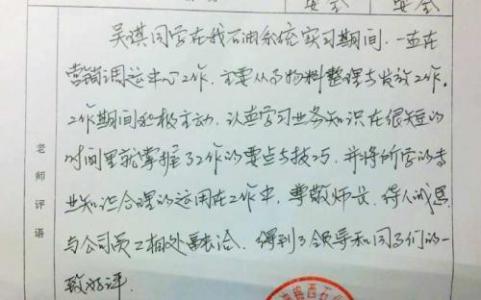 吴淇同学在我石油系统实习期间，一直在
营销调运中心工作，主要从事物料整理与发放工作。
工作期间积极主动，认真学习业务知识在很短的
时间里就掌握了工作的要点与技巧，并将所学的专
业知识合理的运用在工作中，尊敬师长，待人诚恳
与公司员工相处融洽，得到了领导和同事们的一
致好评．
老师评语